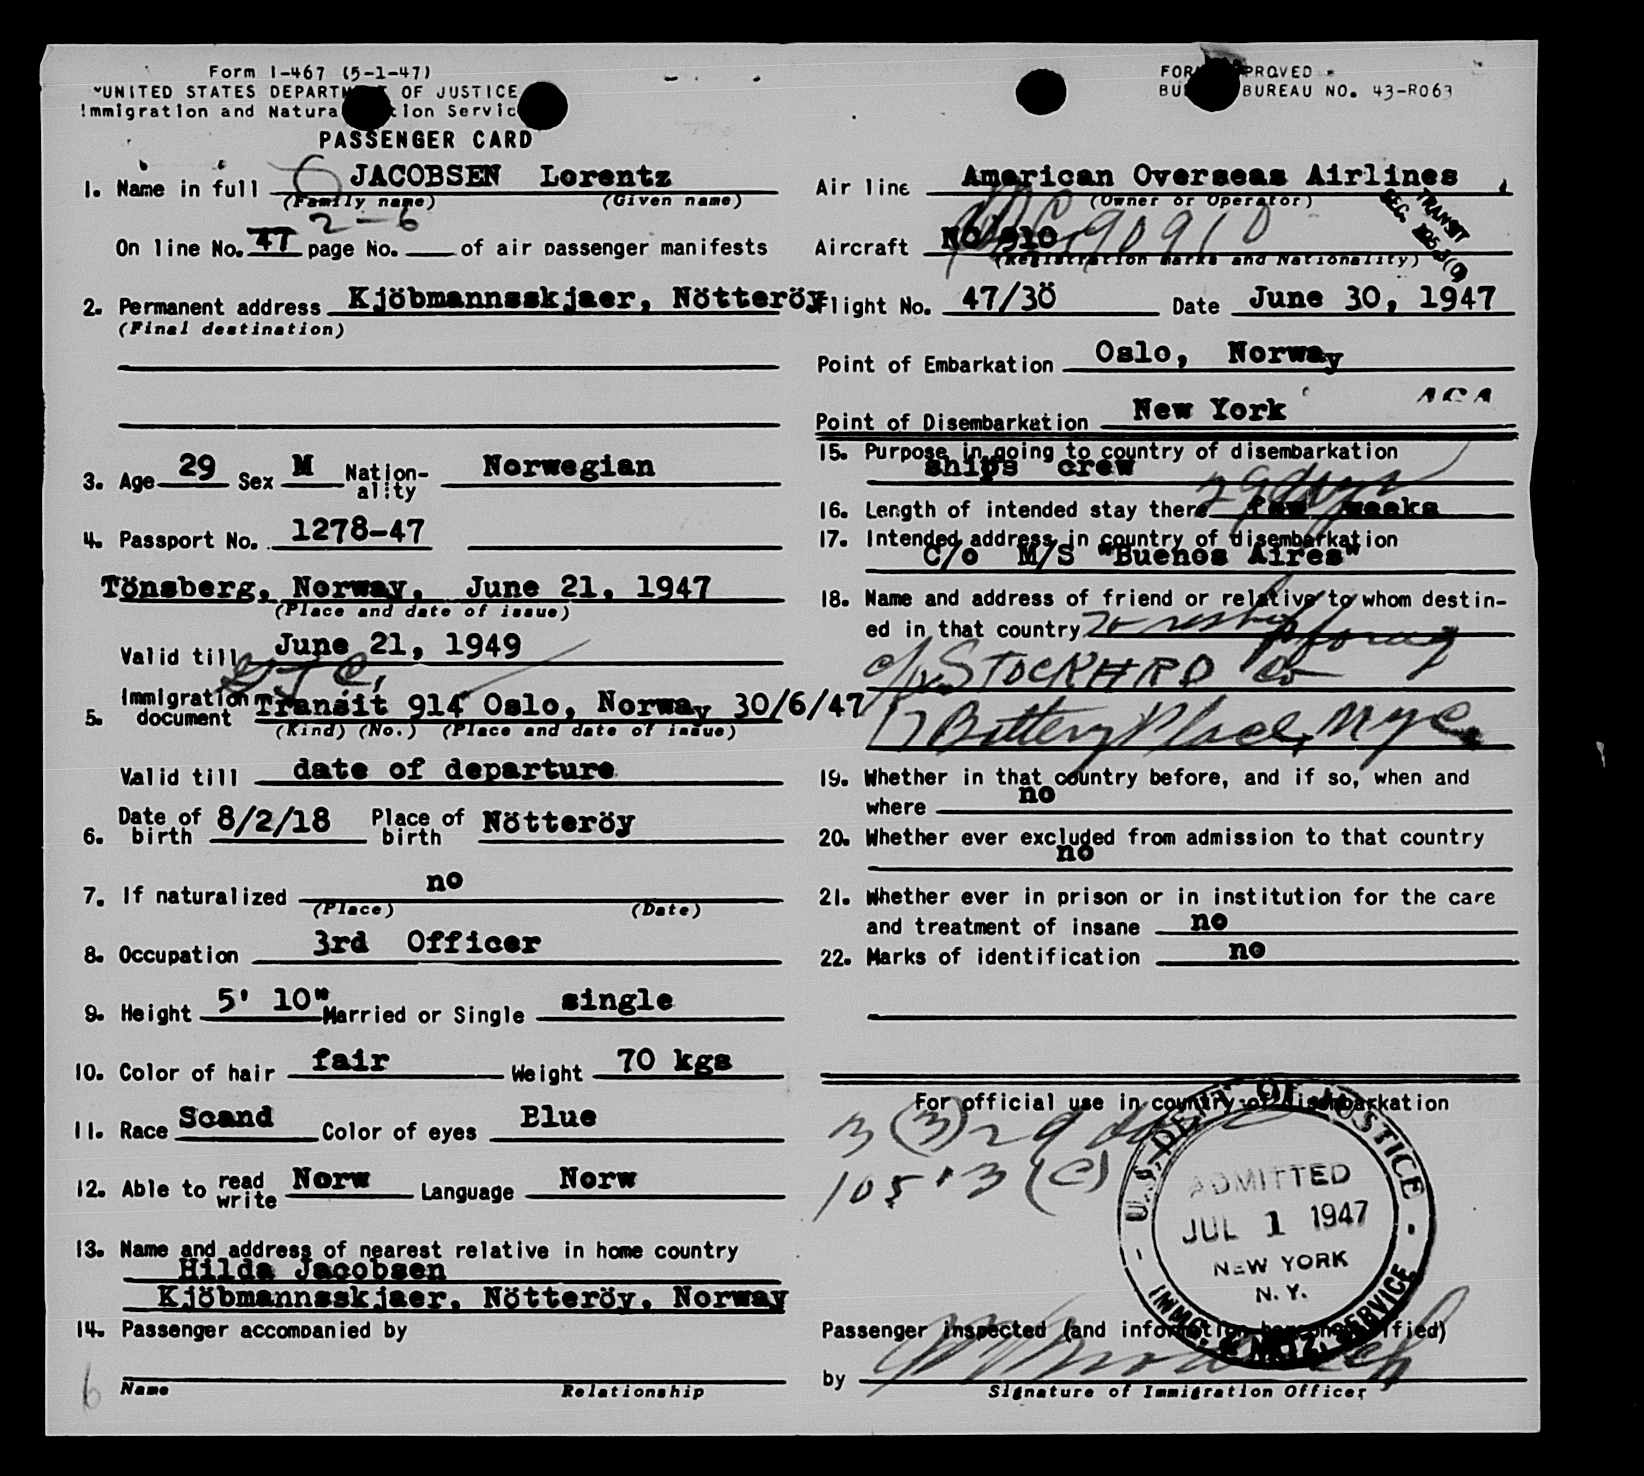 Form I-467 (5-1-47)
UNITED STATES DEPARTMENT OF JUSTICE
Immigration and Naturalization Service
PASSENGER CARD
1. Name in full JACOBSEN Lorentz
(Family name) (Given name)
2-6
On line No. 47 page No. of air passenger manifests
2. Permanent address Kjöbmannsskjaer, Nötteröy
(Final destination)
3. Age 29 Sex M Nation-ality Norwegian
4. Passport No. 1278-47
Tönsberg, Norway, June 21, 1947
(Place and date of issue)
Valid till June 21, 1949
5. Immigration document Transit 914 Oslo, Norway 30/6/47
(Kind) (No.) (Place and date of issue)
Valid till date of departure
6. Date of birth 8/2/18 Place of birth Nötteröy
7. If naturalized no
(Place) (Date)
8. Occupation 3rd Officer
9. Height 5' 10" Married or Single single
10. Color of hair fair Weight 70 kgs
11. Race Scand Color of eyes Blue
12. Able to read write Norw Language Norw
13. Name and address of nearest relative in home country
Hilda Jacobsen
Kjöbmannsskjaer, Nötteröy, Norway
14. Passenger accompanied by
Name Relationship
6
FORM APPROVED
BUREAU NO. 43-R063
Air line American Overseas Airlines
(Owner or Operator)
TRANSIT
SEC.
Aircraft NC 910 90910
(Registration marks and Nationality)
Flight No. 47/30 Date June 30, 1947
Point of Embarkation Oslo, Norway
ACA
Point of Disembarkation New York
15. Purpose in going to country of disembarkation
ships crew
29 days
16. Length of intended stay there few weeks
17. Intended address in country of disembarkation
C/o M/S "Buenos Aires"
18. Name and address of friend or relative to whom destin-
ed in that country To reship foreign
c/o STOCKHRD Co
17 Battery Place, N.Y.C.
19. Whether in that country before, and if so, when and
where no
20. Whether ever excluded from admission to that country
no
21. Whether ever in prison or in institution for the care
and treatment of insane no
22. Marks of identification no
For official use in country of disembarkation
3 (3) 29 days
105.3 (C)
U.S. DEPT. OF JUSTICE
ADMITTED
JUL 1 1947
NEW YORK
N. Y.
IMMG. & NATZ. SERVICE
Passenger inspected (and information hereon verified)
by
Signature of Immigration Officer